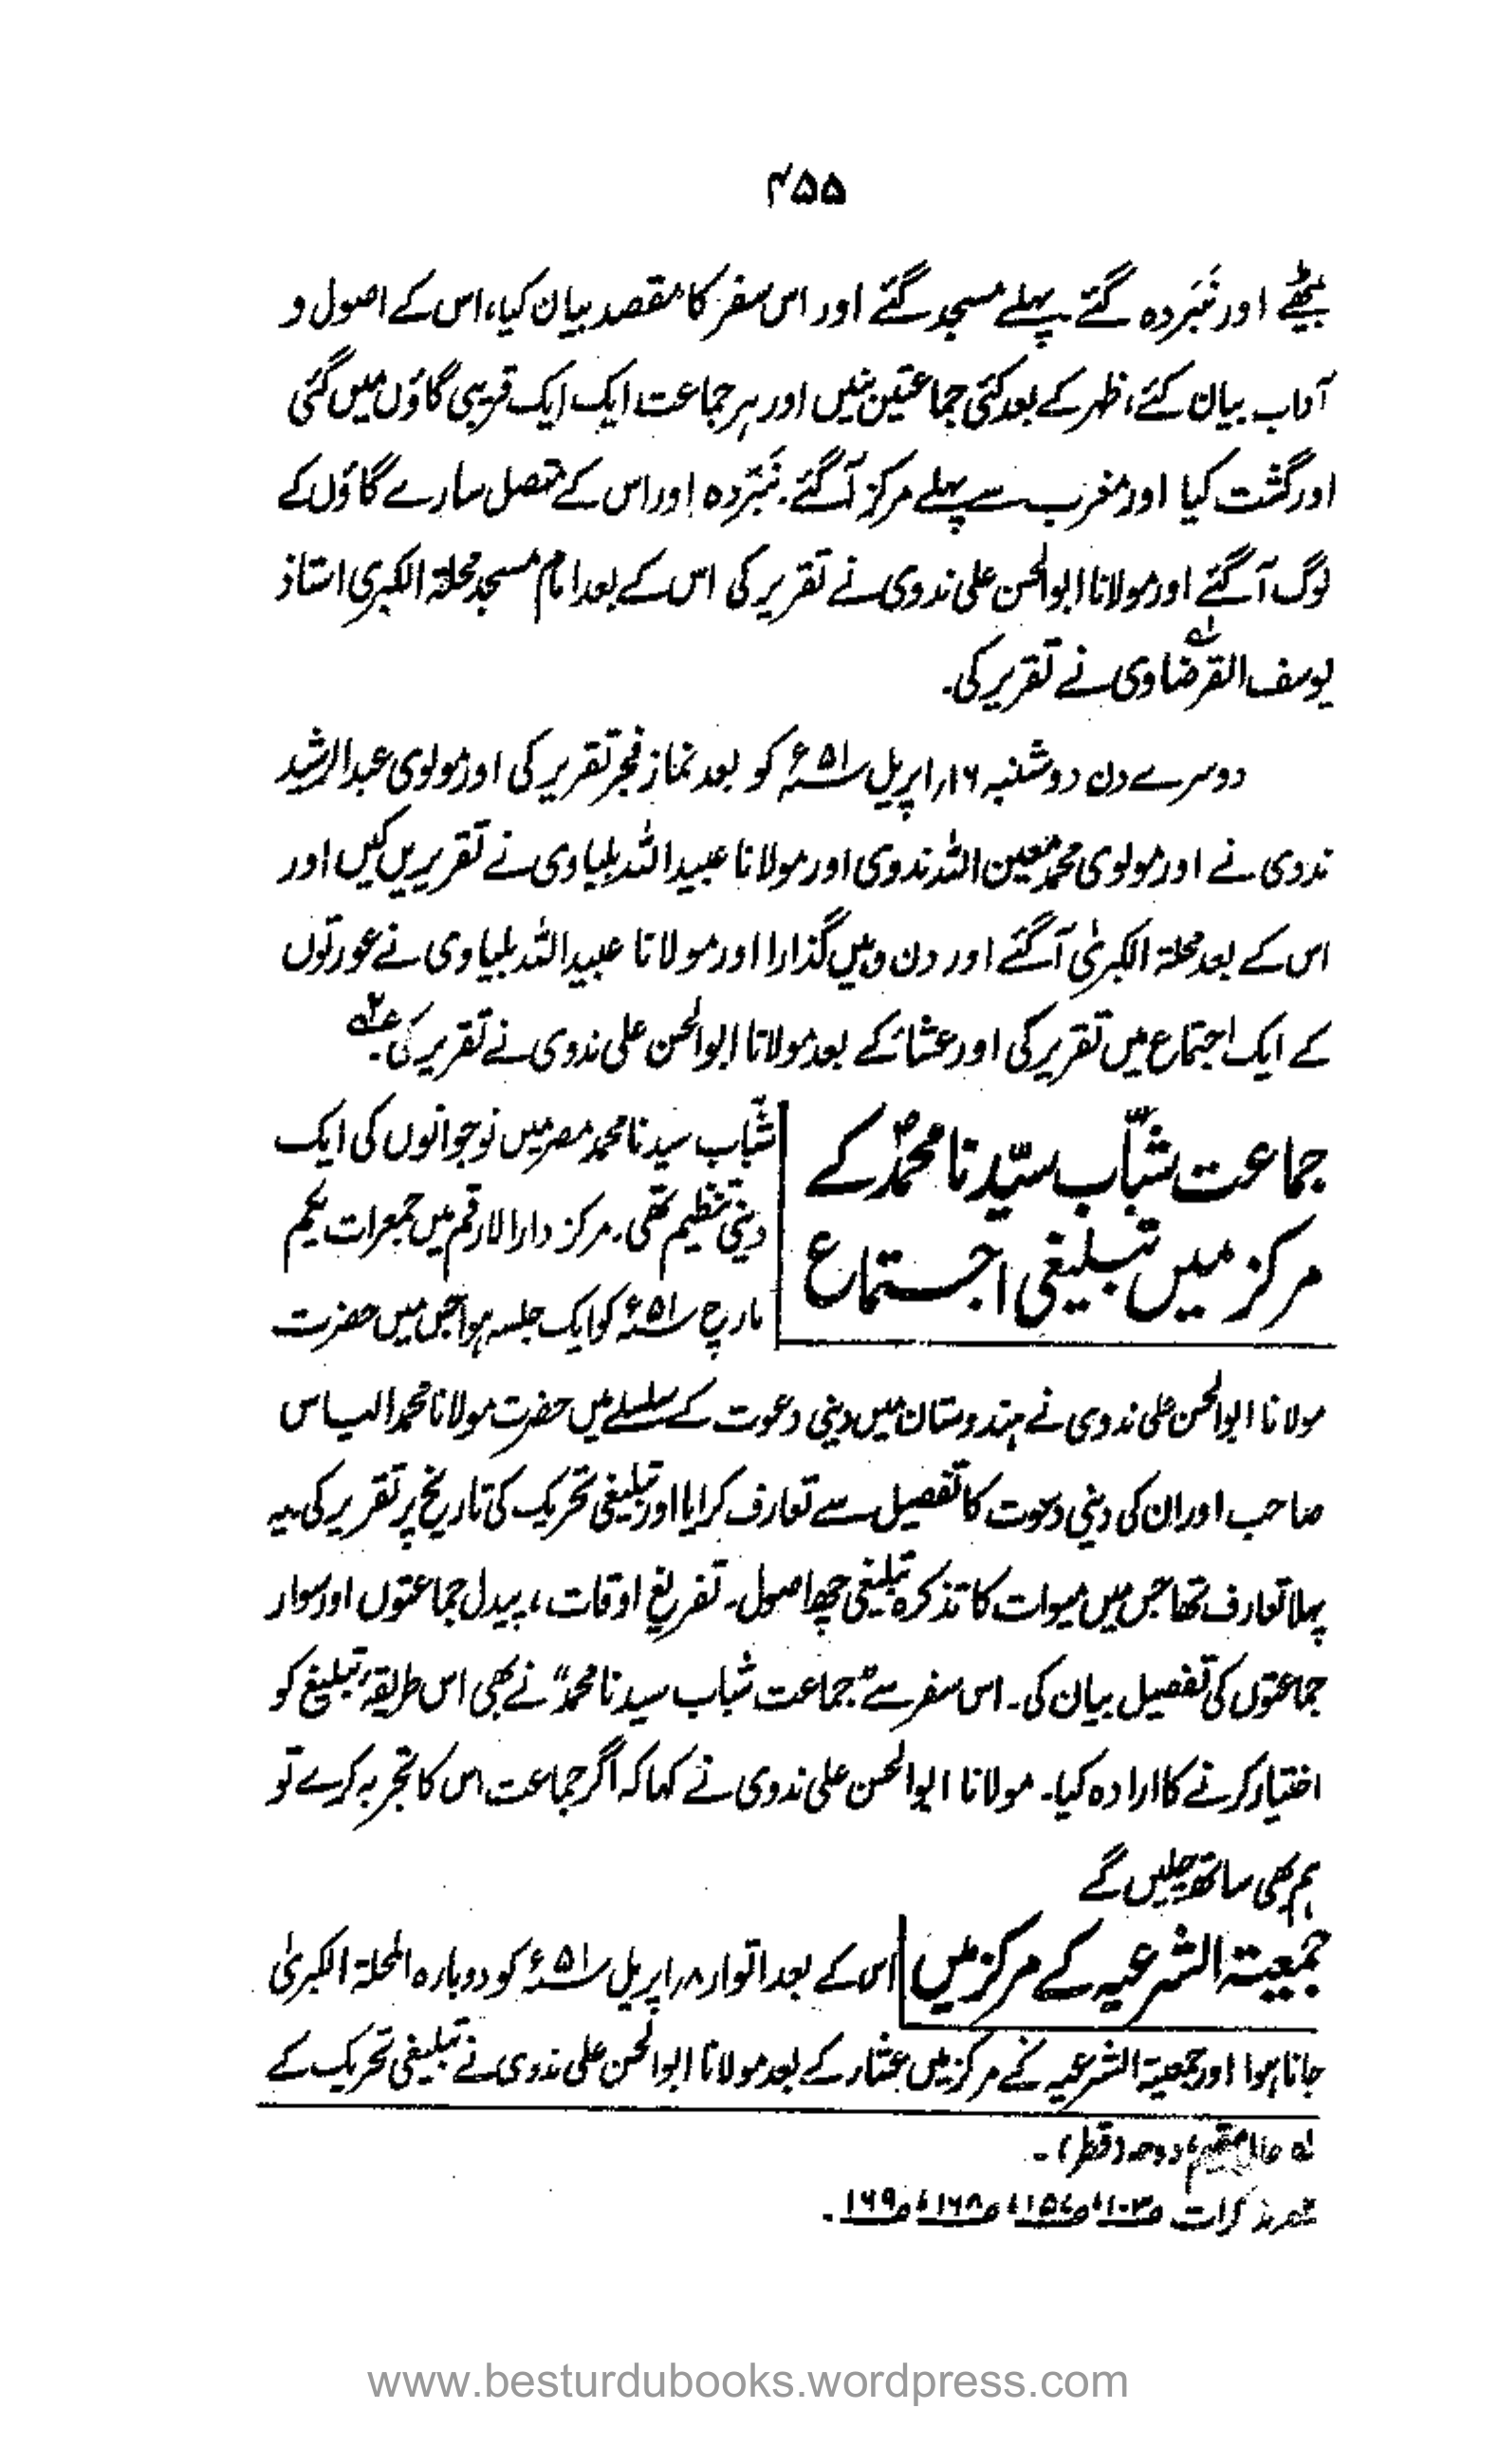 ۴۵۵
بیٹھے اور نَبَرده گئے پہلے مسجد گئے اور اس سفر کا مقصد بیان کیا، اس کے اصول و
آداب بیان کئے، ظہر کے بعد کئی جماعتیں بنیں اور ہر جماعت ایک ایک قریبی گاؤں میں گئی
اور گشت کیا اور مغرب سے پہلے مرکز آ گئے۔ نَبَرده اور اس کے متصل سارے گاؤں کے
لوگ آ گئے اور مولانا ابوالحسن علی ندوی نے تقریر کی اس کے بعد امام مسجد محلۃ الکبری استاذ
یوسف القرضاوی لہ نے تقریر کی۔
دوسرے دن دوشنبہ ۱۶ اپریل ۵۱ء کو بعد نماز فجر تقریر کی اور مولوی عبدالرشید
ندوی نے اور مولوی محمد معین اللہ ندوی اور مولانا عبیداللہ بلیاوی نے تقریریں کیں اور
اس کے بعد محلۃ الکبریٰ آ گئے اور دن وہیں گذارا اور مولانا عبیداللہ بلیاوی نے عورتوں
کے ایک اجتماع میں تقریر کی اور عشاء کے بعد مولانا ابوالحسن علی ندوی نے تقریر کی۔ ۲؎
جماعت شبّاب سیّدنا محمدؐ کے
مرکز میں تبلیغی اجتماع
شبّاب سیدنا محمد مصر میں نوجوانوں کی ایک
دینی تنظیم تھی۔ مرکز دارالارقم میں جمعرات یکم
مارچ ۵۱ء کو ایک جلسہ ہوا جس میں حضرت
مولانا ابوالحسن علی ندوی نے ہندوستان میں دینی دعوت کے سلسلے میں حضرت مولانا محمد الیاس
صاحب اور ان کی دینی دعوت کا تفصیل سے تعارف کرایا اور تبلیغی تحریک کی تاریخ پر تقریر کی یہ
پہلا تعارف تھا جس میں میوات کا تذکرہ تبلیغی چھ اصول۔ تفریغ اوقات، پیدل جماعتوں اور سوار
جماعتوں کی تفصیل بیان کی۔ اس سفر سے "جماعت شباب سیدنا محمد" نے بھی اس طریقۂ تبلیغ کو
اختیار کرنے کا ارادہ کیا۔ مولانا ابوالحسن علی ندوی نے کہا کہ اگر جماعت اس کا تجربہ کرے تو
ہم بھی ساتھ چلیں گے
جمعیۃ الشرعیہ کے مرکز میں
اس کے بعد اتوار ۸ اپریل ۵۱ء کو دوبارہ المحلۃ الکبریٰ
جانا ہوا اور جمعیۃ الشرعیہ کے مرکز میں عشار کے بعد مولانا ابوالحسن علی ندوی نے تبلیغی تحریک کے
لہ حال مقیم دوحہ (قطر)۔
مذکرات ص۱۰۳، ص۱۵۷، ص۱۶۸، ص۱۶۹۔
www.besturdubooks.wordpress.com